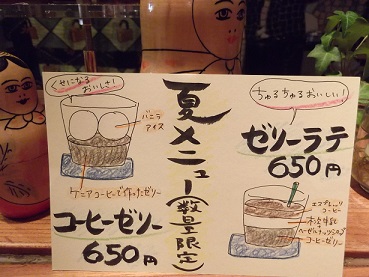 夏メニュー(数量限定)
くせになる
おいしさ!
バニラ
アイス
ケニアコーヒーで作ったゼリー
コーヒーゼリー
650円
ちゅるちゅるおいしい!
ゼリーラテ
650円
エスプレッソ
コーヒー
木次牛乳
ヘーゼルナッツシロップ
コーヒーゼリー